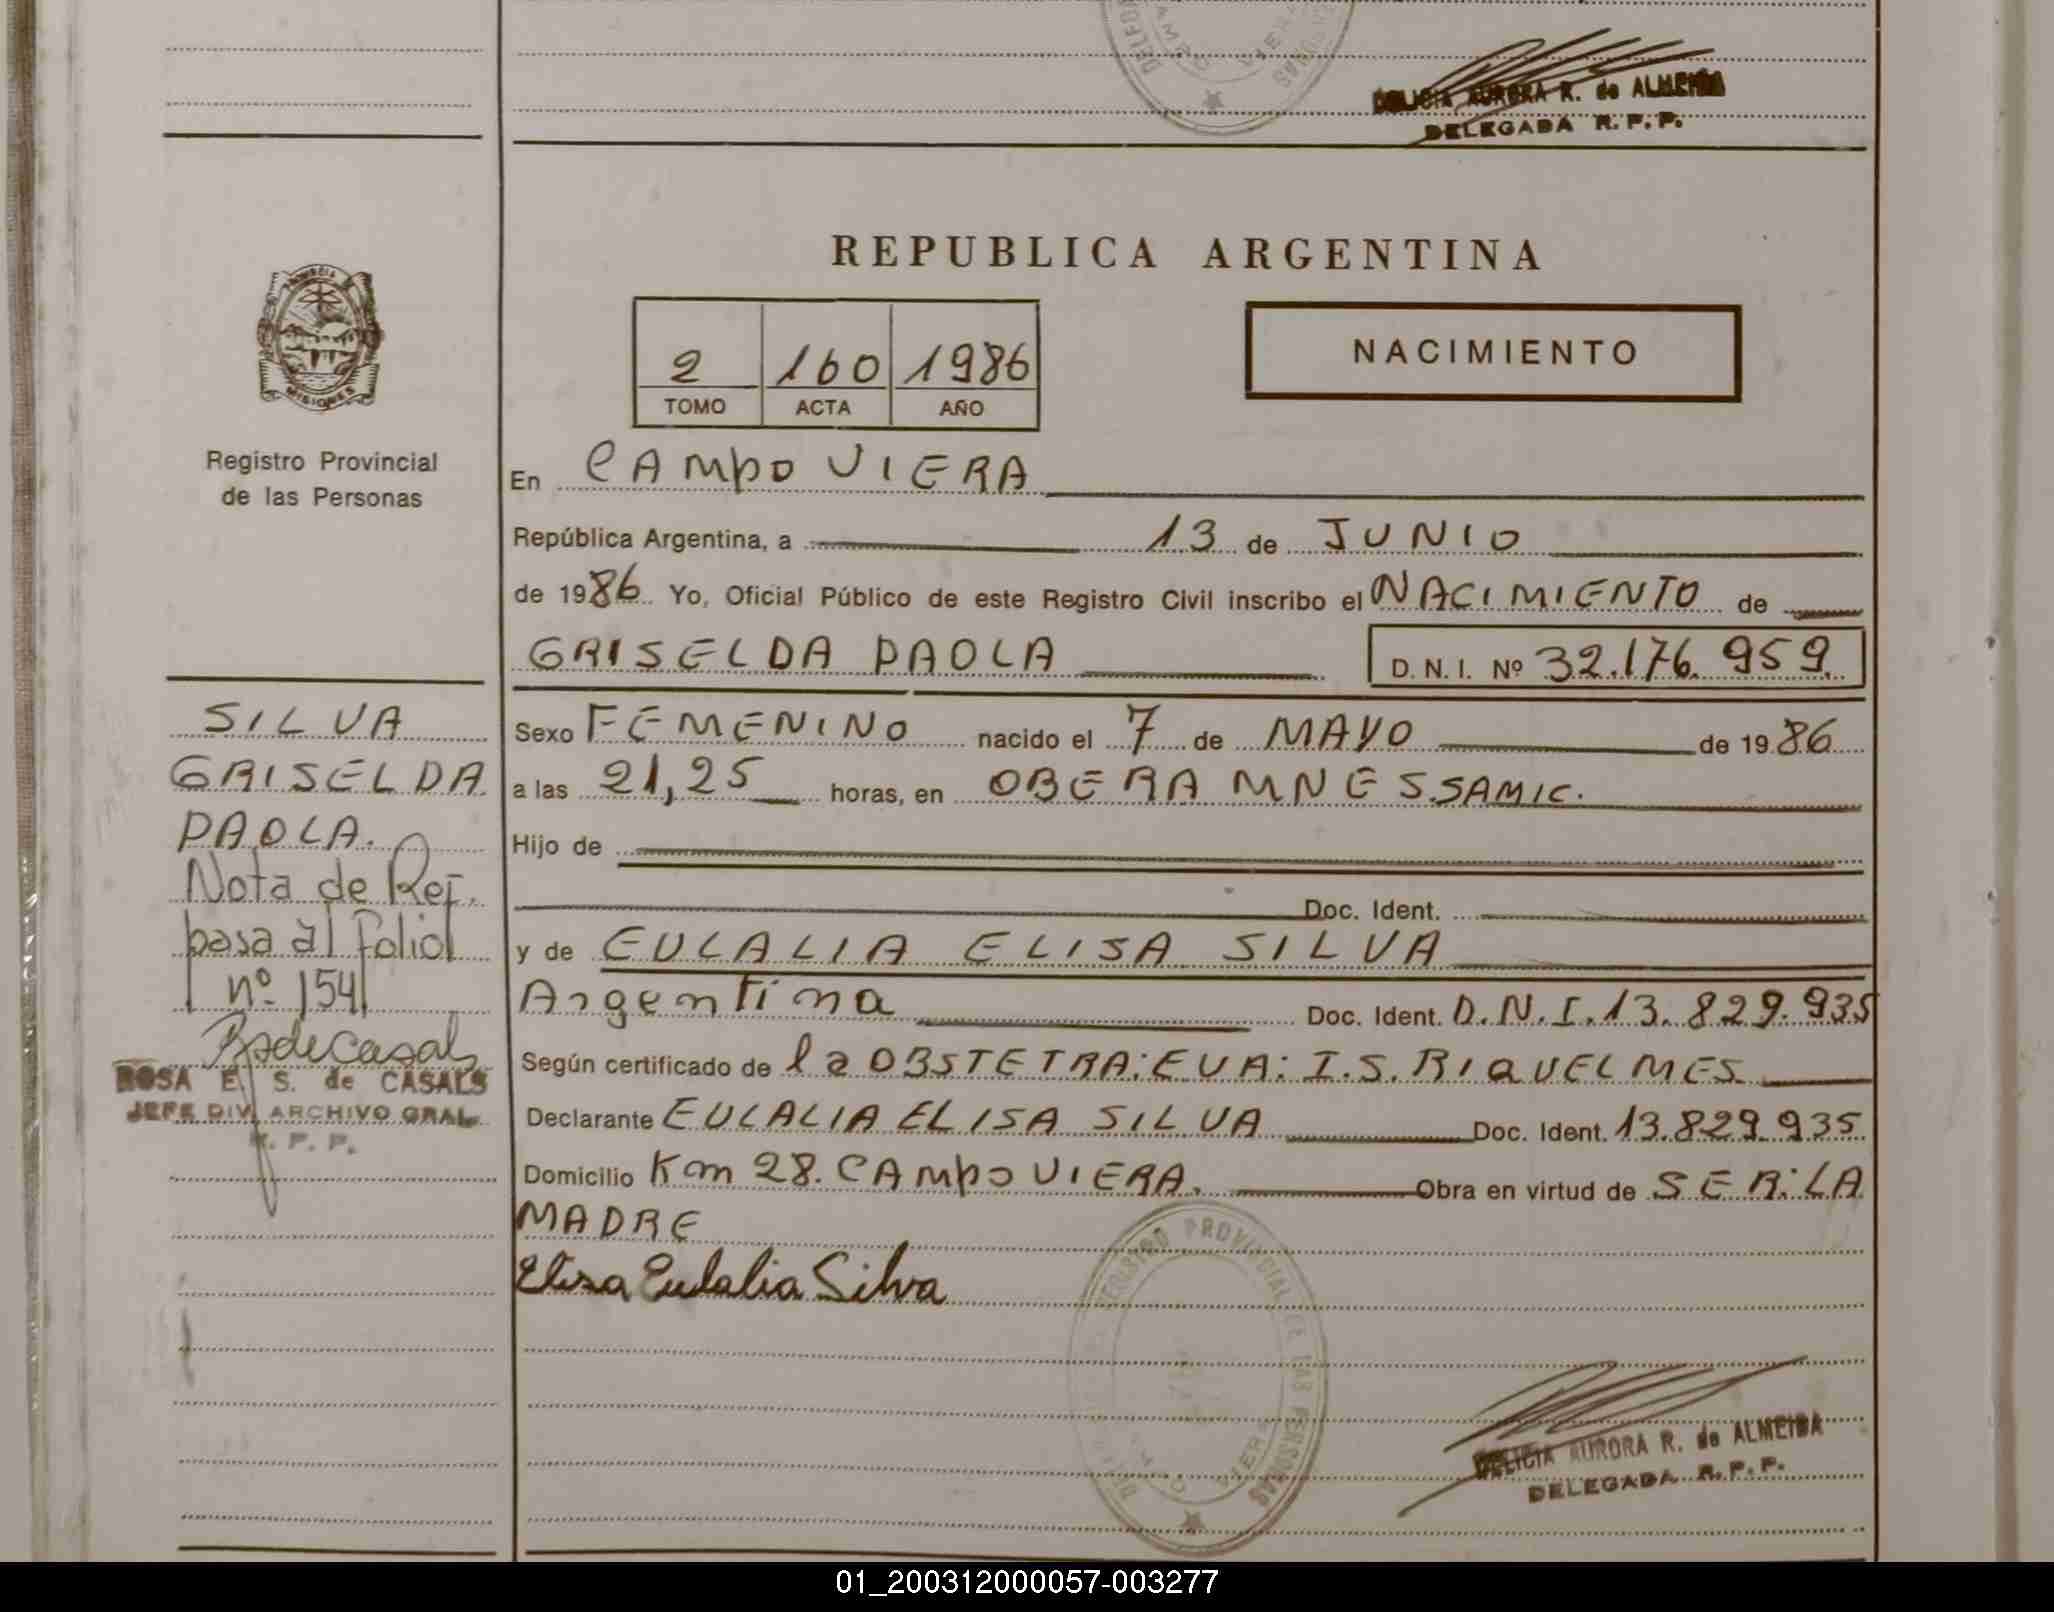 DELICIA AURORA R. de ALMEIDA
DELEGADA R. P. P.
REPUBLICA ARGENTINA
2 160 1986
TOMO ACTA AÑO
NACIMIENTO
MISIONES
Registro Provincial
de las Personas
En CAMPO VIERA
República Argentina, a 13 de JUNIO
de 1986 Yo, Oficial Público de este Registro Civil inscribo el NACIMIENTO de
GRISELDA PAOLA D. N. I. Nº 32.176.959.
SILVA
GRISELDA
PAOLA.
Nota de Ref.
pasa al folio
nº 154
RSdeCasals
ROSA E. S. de CASALS
JEFE DIV. ARCHIVO GRAL.
R. P. P.
Sexo FEMENINO nacido el 7 de MAYO de 1986
a las 21,25 horas, en OBERA MNES.SAMIC.
Hijo de
Doc. Ident.
y de EULALIA ELISA SILVA
Argentina Doc. Ident. D.N.I.13.829.935
Según certificado de la OBSTETRA:EVA: I.S. RIQUELMES
Declarante EULALIA ELISA SILVA Doc. Ident. 13.829.935.
Domicilio Km 28. CAMPO VIERA. Obra en virtud de SER:LA
MADRE
Elisa Eulalia Silva
REGISTRO PROVINCIAL DE LAS PERSONAS
VIERA
DELICIA AURORA R. de ALMEIDA
DELEGADA R. P. P.
01_200312000057-003277